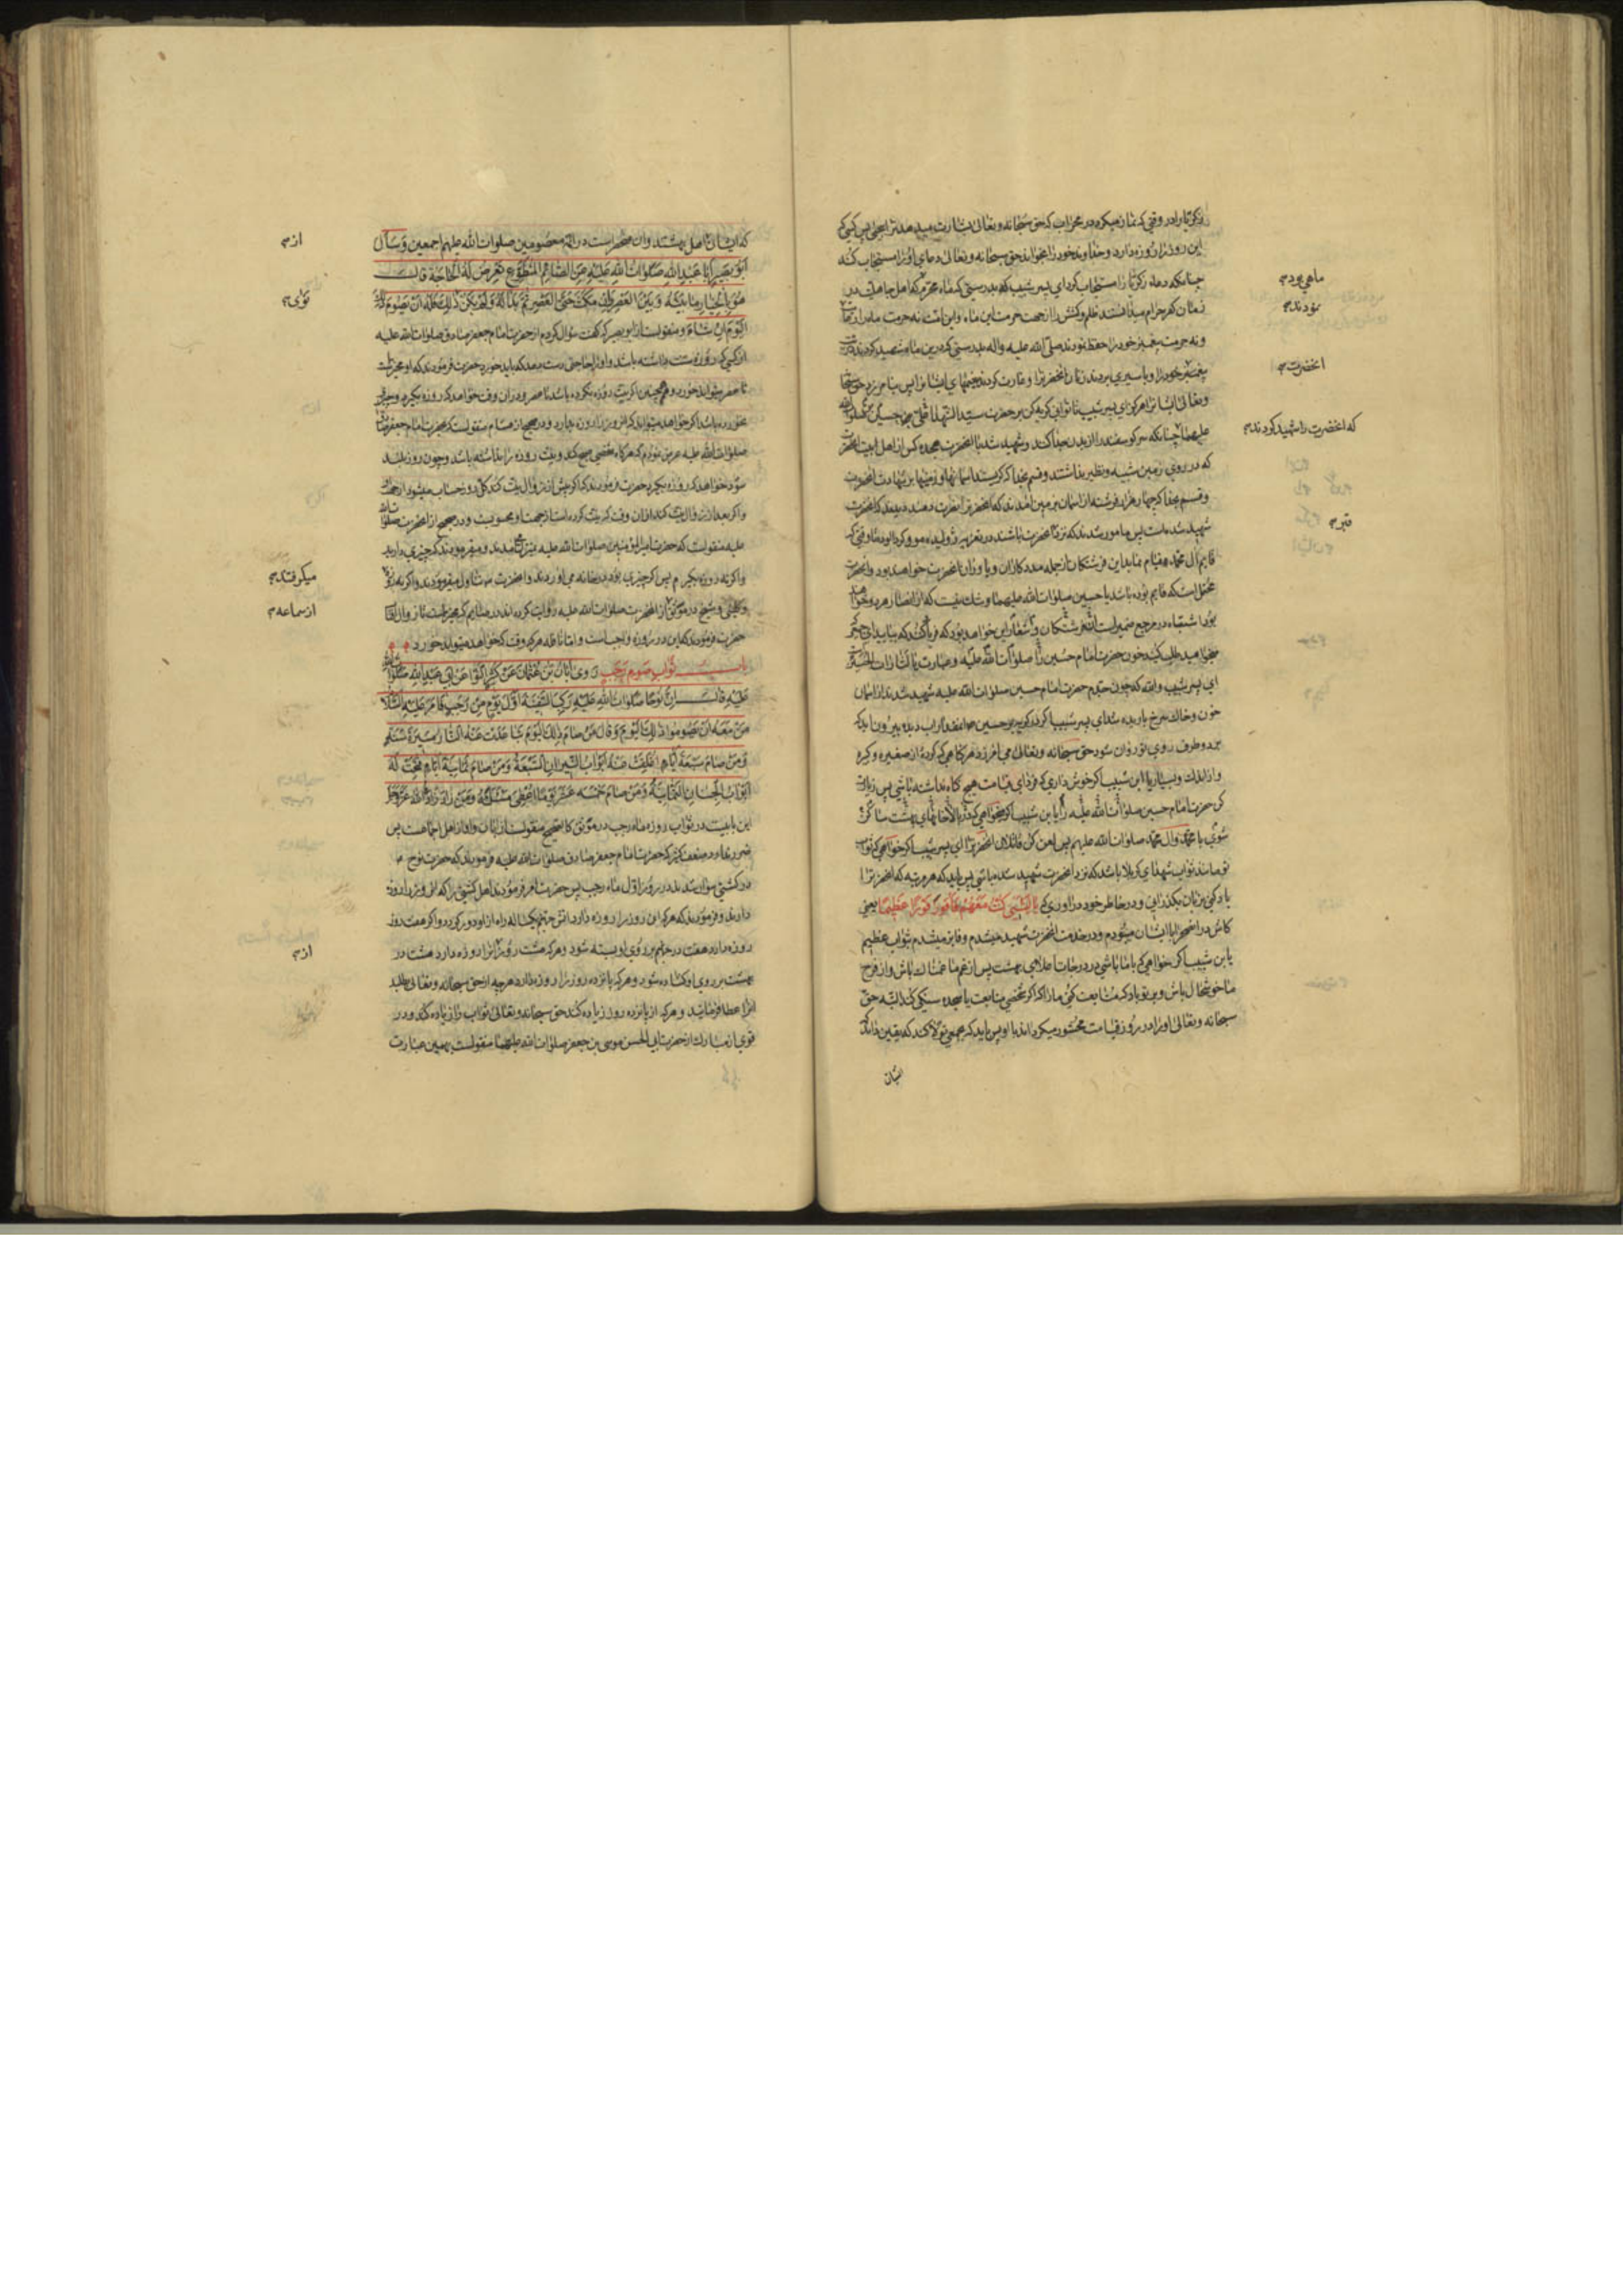 زکریا را در وقتی که نماز میکرد در محراب که حق سبحانه و تعالی بشارت میدهد ترا بیحیی پس کسی که
این روز را روزه دارد و خداوند خود را بخواند حق سبحانه و تعالی دعای او را مستجاب کند
چنانکه دعای زکریا را مستجاب کرد ای پسر شبیب که بدرستی که ماه محرم که اهل جاهلیت در
زمان کفر حرام میدانستند ظلم و کشش را از جهت حرمت این ماه و این امت نه حرمت ماه را
و نه حرمت پیغمبر خود را حفظ نمودند صلی الله علیه و اله بدرستی که درین ماه شهید کردند
پیغمبر خود را و باسیری بردند زنان آنحضرترا و غارت کردند خیمهای ایشانرا پس نیامرزد حق
و تعالی ایشانرا هرگز ای پسر شبیب تا توانی گریه کن بر حضرت سید الشهدا
علیهما چنانکه سر گوسفند را از بدن جدا کنند و شهید شد با آنحضرت هجده کس از اهل بیت آنحضرت
که در روی زمین شبیه و نظیر نداشتند و قسم بخدا که گریستند اسمانها و زمینها بر شهادت آنحضرت
و قسم بخدا که چهار هزار فرشته از اسمان بزمین آمدند که آنحضرترا نصرت دهند دیدند که آنحضرت
شهید شده است پس مامور شدند که نزد آنحضرت باشند در تعزیه ژولیده مو و گرد آلوده تا وقتی که
قایم آل محمد قیام نماید این فرشتگان از جمله مددکاران و یاوران آنحضرت خواهند بود و آنحضرت
محتمل است که قایم بوده باشد یا حسین صلوات الله علیهما و شک نیست که از انصار هر دو خواهند
بود اشتباه در مرجع ضمیر است
میخواهید طلب کنید خون حضرت امام حسین را صلوات الله علیه و عبارت یا لثارات الحسین
ای پسر شبیب والله که چون جدم حضرت امام حسین صلوات الله علیه شهید شدند از اسمان
خون و خاک سرخ بارید ای پسر شبیب اگر بگریی بر حسین آنمقدار که آب دیده بیرون آید که
بر دو طرف روی تو روان شود حق سبحانه و تعالی می آمرزد هر گناهی که کرده از صغیره و کبیره
و از اندک و بسیار یا ابن شبیب اگر خوش داری که فردای قیامت هیچ گناه نداشته باشی پس زیارت
کن حضرت امام حسین صلوات الله علیه را یا بن شبیب اگر میخواهی که در بالاخانهای بهشت ساکن
شوی با محمد و آل محمد صلوات الله علیهم پس لعن کن قاتلان آنحضرترا ای پسر شبیب اگر خواهی که ثواب
تو مانند ثواب شهدای کربلا باشد که نزد آنحضرت شهید شده باشی پس باید که هر مرتبه که آنحضرترا
یاد کنی بر زبان بگذرانی و در خاطر خود در آوری که یا لیتنی کنت معهم فافوز فوزا عظیما یعنی
کاش در صحرا با ایشان میبودم و در خدمت آنحضرت شهید میشدم و فایز میشدم بثواب عظیم
یا بن شبیب اگر خواهی که با ما باشی در درجات اعلای بهشت پس از غم ما غمناک باش و از فرح
ما خوشحال باش و بر تو باد که متابعت کنی ما را که اگر شخصی متابعت یا محبت سنگی کند البته حق
سبحانه و تعالی او را در روز قیامت محشور میگرداند با او پس باید که بجمعی تولا کند که یقین داند
ایشان
ماهی بود
نمودند
آنحضرت
که آنحضرت را شهید کردند
قبر
که ایشان اهل بهشتند و آن منحصر است در ائمه معصومین صلوات الله علیهم اجمعین وَسَأَلَ
أَبُو بَصِيرٍ أَبَا عَبْدِ اللهِ صَلَوَاتُ اللهِ عَلَيْهِ عَنِ الصَّائِمِ الْمُتَطَوِّعِ تَعْرِضُ لَهُ الْحَاجَةُ قَالَ
هُوَ بِالْخِيَارِ مَا بَيْنَهُ وَبَيْنَ الْعَصْرِ وَإِنْ مَكَثَ حَتَّى الْعَصْرِ ثُمَّ بَدَا لَهُ وَلَمْ يَكُنْ ذَلِكَ فَلَهُ أَنْ يَصُومَ ذَلِكَ
الْيَوْمَ إِنْ شَاءَ و منقولست از ابو بصیر که گفت سؤال کردم از حضرت امام جعفر صادق صلوات الله علیه
از کسی که روزه سنت داشته باشد و او را حاجتی رسد که باید خورد حضرت فرمودند که او مخیر است
تا عصر میتواند خورد و همچنین اگر نیت روزه نکرده باشد تا عصر و در آن وقت خواهد که روزه بگیرد و چیزی
نخورده باشد اگر خواهد میتواند که آنروز را روزه بدارد و در صحیح از هشام منقولست که بحضرت امام جعفر صادق
صلوات الله علیه عرض نمودم که هرگاه شخصی صبح کند و نیت روزه را نداشته باشد و چون روز بلند
شود خواهد که روزه بگیرد حضرت فرمودند که اگر پیش از زوال نیت کند کل روز حساب میشود از جهت
و اگر بعد از زوال نیت کند از آن وقت که نیت کرده است از جهت او محسوبست و در صحیح از آنحضرت صلوات الله
علیه منقولست که حضرت امیر المؤمنین صلوات الله علیه بمنزل میآمدند و میفرمودند که چیزی دارید
و اگر نه روزه بگیرم پس اگر چیزی بود در خانه می آوردند و آنحضرت تناول میفرمودند و اگر نه روزه
و کلینی و شیخ در موثق از آنحضرت صلوات الله علیه روایت کرده اند در صایم که مخیر است تا زوال
حضرت فرمودند که این در روزه واجب است و اما نافله هر گه وقت که خواهد میتواند خورد
باب ثواب صوم رجب رَوَى أَبَانُ بْنُ عُثْمَانَ عَنْ كَثِيرٍ النَّوَّا عَنْ أَبِي عَبْدِ اللهِ صَلَوَاتُ اللهِ
عَلَيْهِ قَالَ إِنَّ نُوحًا صَلَوَاتُ اللهِ عَلَيْهِ رَكِبَ السَّفِينَةَ أَوَّلَ يَوْمٍ مِنْ رَجَبٍ فَأَمَرَ عَلَيْهِ السَّلَامُ
مَنْ مَعَهُ أَنْ يَصُومُوا ذَلِكَ الْيَوْمَ وَقَالَ مَنْ صَامَ ذَلِكَ الْيَوْمَ تَبَاعَدَتْ عَنْهُ النَّارُ مَسِيرَةَ سَنَةٍ
وَمَنْ صَامَ سَبْعَةَ أَيَّامٍ أُغْلِقَتْ عَنْهُ أَبْوَابُ النِّيرَانِ السَّبْعَةُ وَمَنْ صَامَ ثَمَانِيَةَ أَيَّامٍ فُتِحَتْ لَهُ
أَبْوَابُ الْجِنَانِ الثَّمَانِيَةُ وَمَنْ صَامَ خَمْسَةَ عَشَرَ يَوْمًا أُعْطِيَ مَسْأَلَتَهُ وَمَنْ زَادَ زَادَهُ اللهُ عَزَّ وَجَلَّ
این بابیست در ثواب روزه ماه رجب در موثق کالصحیح منقولست از ابان و او از اهل اجماعست پس
ضرر ندارد ضعف کثیر که حضرت امام جعفر صادق صلوات الله علیه فرمودند که حضرت نوح
در کشتی سوار شدند در روز اول ماه رجب پس حضرت امر فرمودند اهل کشتی را که آنروز را روزه
دارند و فرمودند که هر که این روز را روزه دارد آتش جهنم یکساله راه از او دور گردد و اگر هفت روز
روزه دارد هفت در جهنم بر روی او بسته شود و هر که هشت روز را روزه دارد هشت در
بهشت بر روی او گشاده شود و هر که پانزده روز را روزه دارد هر چه از حق سبحانه و تعالی طلبد
آنرا عطا فرماید و هر که از پانزده روز زیاده کند حق سبحانه و تعالی ثواب را زیاده کند و در
قوی از مبارک از حضرت ابی الحسن موسی بن جعفر صلوات الله علیهما منقولست بهمین عبارت
از
میگرفتند
از سماعه
از